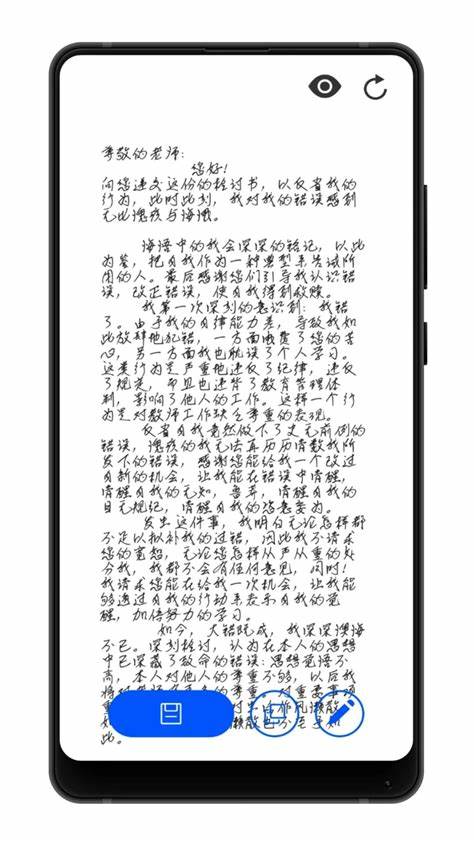 尊敬的老师：
您好！
向您递交这份的检讨书，以反省我的
行为，此时此刻，我对我的错误感到
无比愧疚与悔恨。
悔悟中的我会深深的铭记，以此
为鉴，把自我作为一种典型来告诫所
困的人。最后感谢您们引导我认识错
误，改正错误，使自我得到救赎。
我第一次深刻的意识到：我错
了。由于我的自律能力差，导致我如
此放肆地犯错，一方面浪费了您的苦
心，另一方面我也耽误了个人学习。
这类行为是严重地违反了纪律，违反
了规定，而且也违背了教育管理体
制，影响了他人的工作。这样一个行
为是对教师工作缺乏尊重的表现。
反省自我竟然做下了史无前例的
错误，愧疚的我无法真历历清数我所
发下的错误，感谢您能给我一个改过
自新的机会，让我能在错误中清醒，
清醒自我的无知，愚弄，清醒自我的
目无规纪，清醒自我的恣意妄为。
发生这件事，我明白无论怎样都
不足以拟补我的过错，因此我不请求
您的宽恕，无论您怎样从严从重的处
分我，我都不会有任何意见，同时！
我请求您能在给我一次机会，让我能
够透过自我的行动来表示自我的觉
醒，加倍努力的学习。
如今，大错既成，我深深懊悔
不已。深刻检讨，认为在本人的思想
中已深藏了致命的错误：思想觉悟不
高，本人对他人的尊重不够，以后我
此。